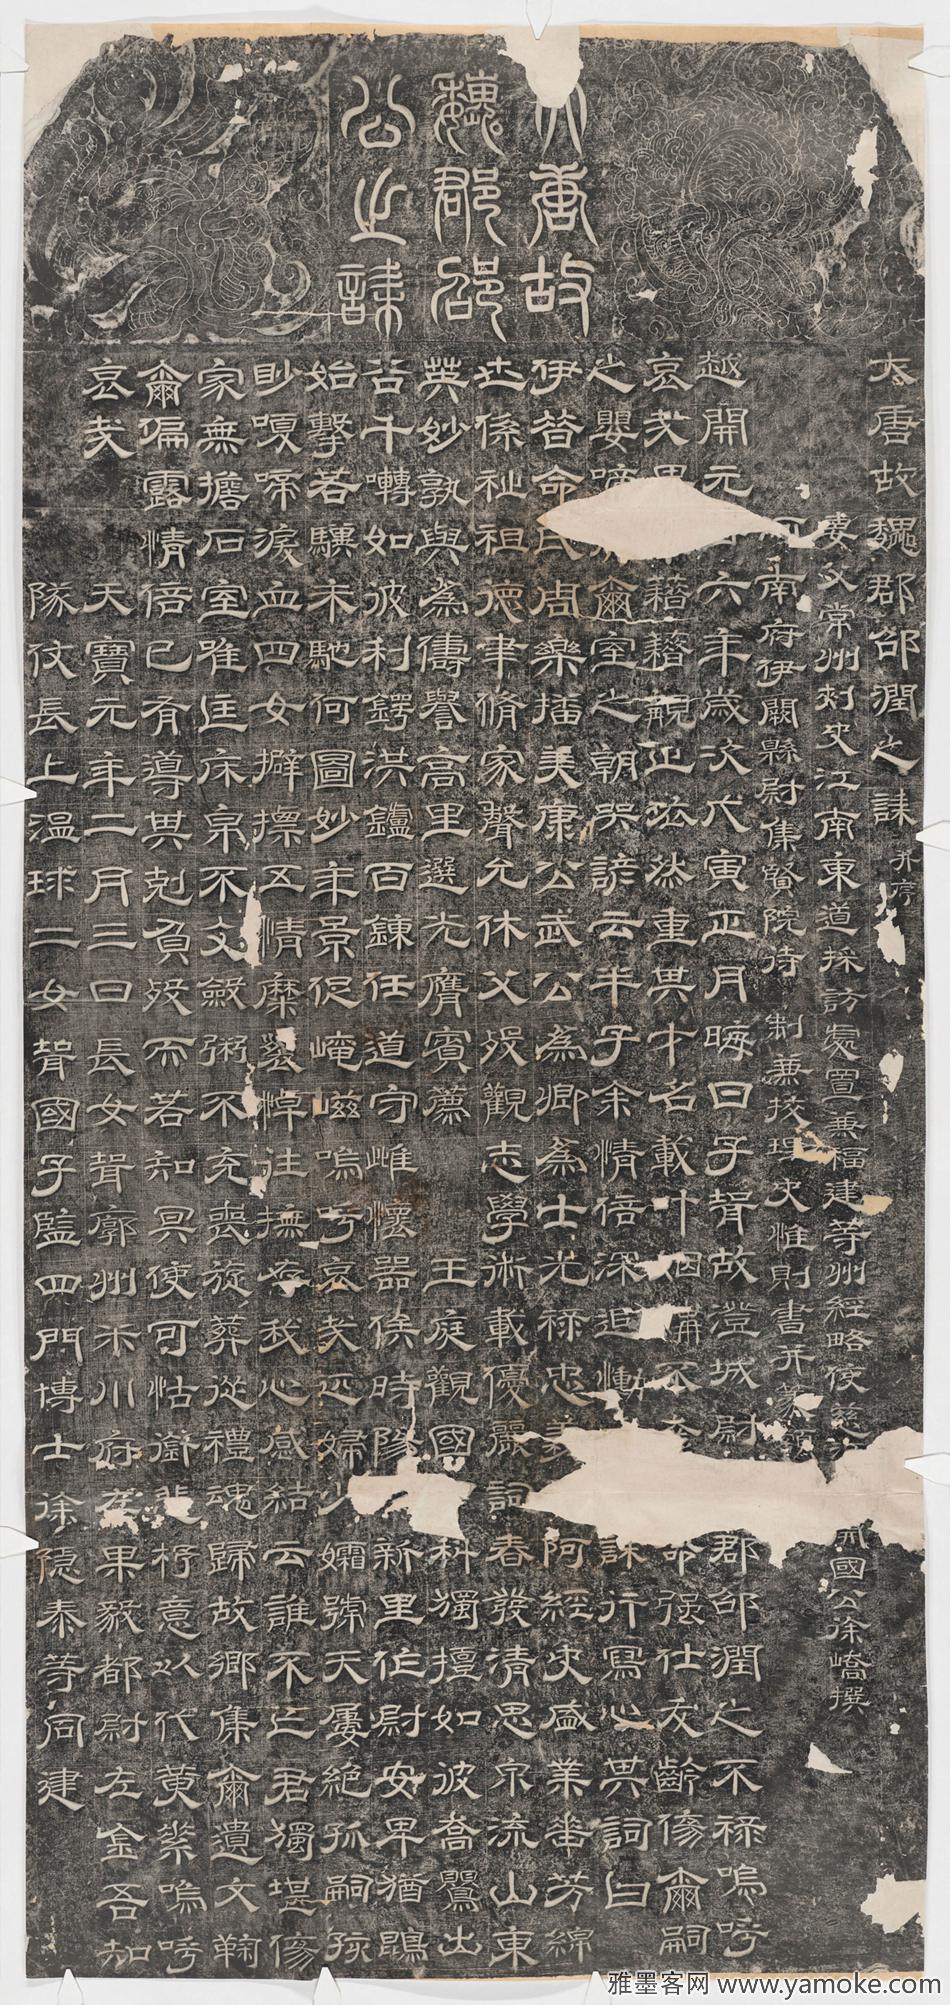 大唐故
魏郡邵
公之誄
大唐故魏郡邵潤之誄并序
妻父常州刺史江南東道採訪處置兼福建等州經略使慈 開國公徐嶠撰
河南府伊闕縣尉集賢院待制兼校理史惟則書并篆額
越開元 六年歲次戊寅正月晦日子聟故澄城尉 郡邵潤之不祿嗚呼
哀哉 藉藉觀止 然重其才名載 不 命强仕友齡俢爾嗣
之嬰啼 爾室之朝哭諺云半子余情倍深追慟 誄行寫心其詞曰
伊昔命氏周樂播美康公武公為卿為士光祿忠 阿經史盛業垂芳綿
世係祉祖德聿脩家聲允休父歿觀志學術載優麗詞春發清思泉流山東
英妙孰與為儔譽高里選光膺賓薦
王庭觀國 科獨擅如彼喬鸎出
谷千囀如彼利鍔洪鑪百鍊任道守雌懷器俟時降 新里作尉安卑猶鵾
始擊若驥未馳何圖妙年景促崦嵫嗚乎哀哉迊婦少孀號天屢絕孤嗣孩
眇嗄啼淚血四女擗摽五情糜裂悼往撫存我心感結云誰不亡君獨堪傷
家無擔石室唯匡床帛不文斂粥不充喪旋葬從禮魂歸故鄉集爾遺文鞠
爾偏露情倍已有導其剋負歿而若知冥使可怙銜悲抒意以代黄絫嗚呼
哀哉
天寶元年二月三日長女聟廓州米川府左果毅都尉左金吾知
隊仗長上溫球二女聟國子監四門博士徐隱泰等同建
雅墨客网 www.yamoke.com